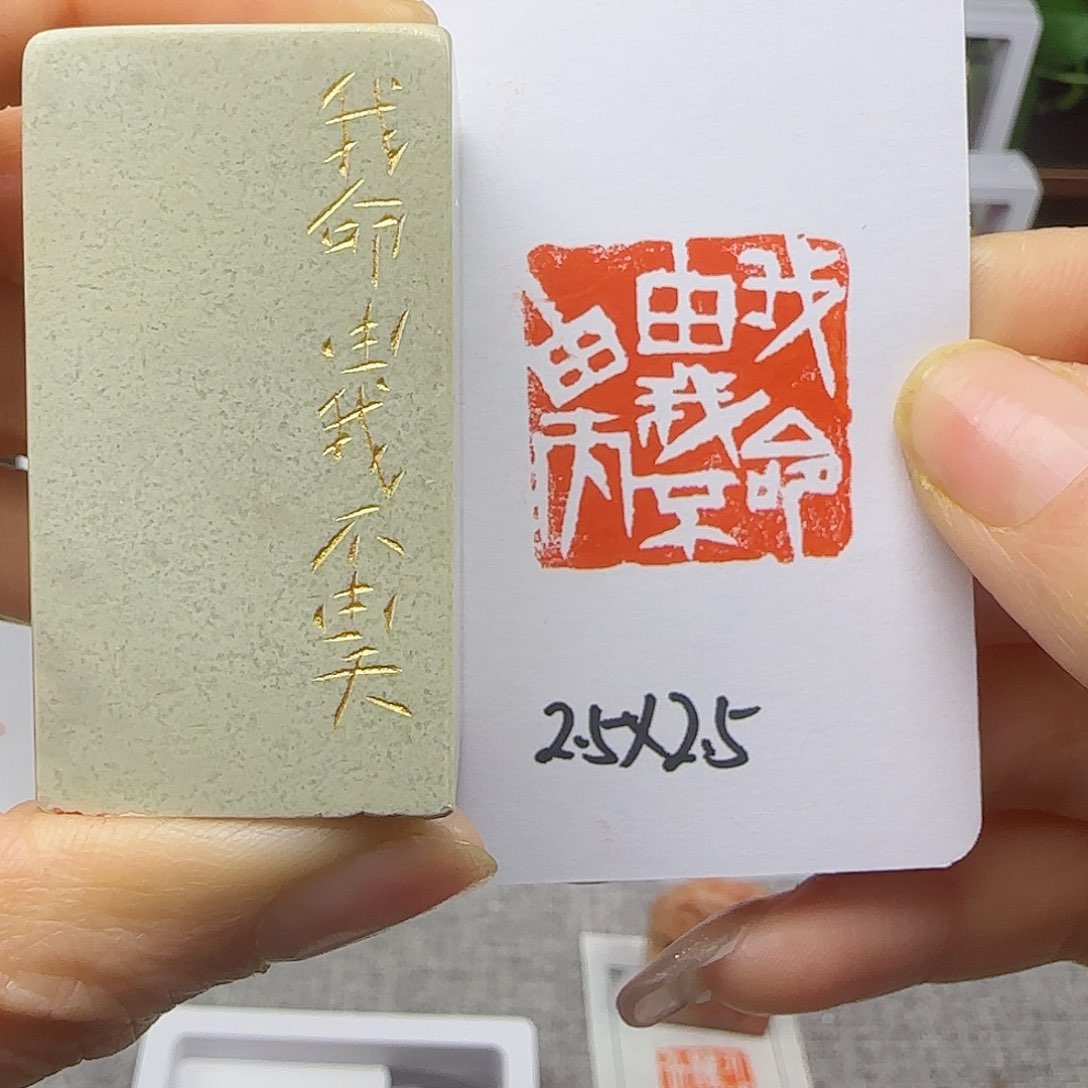 我命由我不由天
我命
由我不
由天
2.5×2.5